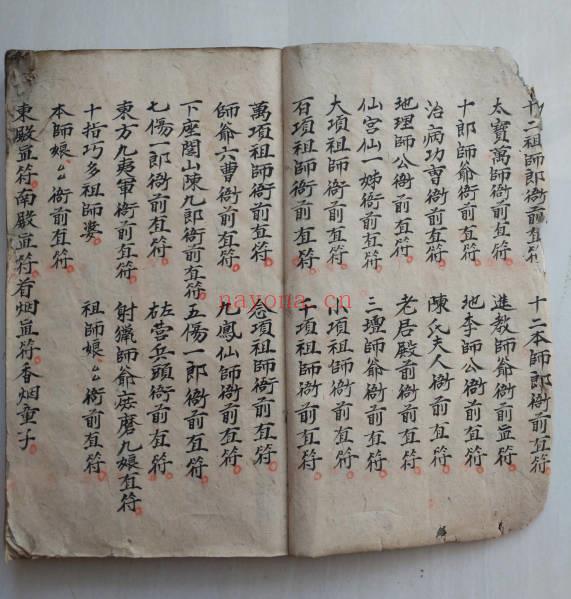 十二祖師郎衙前直符 十二本師郎衙前直符
太寶萬師衙前直符 進教師爺衙前直符
十郎師爺衙前直符 地李師公衙前直符
治病功曹衙前直符 陳氏夫人衙前直符
地理師公衙前直符 老居殿前衙前直符
仙宮仙一姊衙前直符 三壇師爺衙前直符
大項祖師衙前直符 小項祖師衙前直符
百項祖師衙前直符 千項祖師衙前直符
萬項祖師衙前直符 念項祖師衙前直符
師爺六曹衙前直符 九鳳仙師衙前直符
下座閭山陳九郎衙前直符 五傷一郎衙前直符
七傷一郎衙前直符 左營兵頭衙前直符
東方九夷軍衙前直符 射獵師爺庶磨九娘直符
十指巧多祖師婆 祖師娘〻衙前直符
本師娘〻衙前直符
東殿直符南殿直符首烟直符香烟童子
nayona.cn